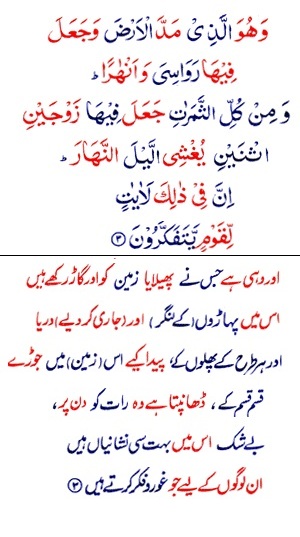 وَهُوَ الَّذِیْ مَدَّ الْاَرْضَ وَجَعَلَ
فِیْهَا رَوَاسِیَ وَاَنْهٰرًا ؕ
وَمِنْ كُلِّ الثَّمَرٰتِ جَعَلَ فِیْهَا زَوْجَیْنِ
اثْنَیْنِ یُغْشِی الَّیْلَ النَّهَارَ ؕ
اِنَّ فِیْ ذٰلِكَ لَاٰیٰتٍ
لِّقَوْمٍ یَّتَفَكَّرُوْنَ ﴿۳﴾
اور وہی ہے جس نے پھیلایا زمین کو اور گاڑ رکھے ہیں
اس میں پہاڑوں (کے لنگر) اور (جاری کر دیے) دریا
اور ہر طرح کے پھلوں کے، پیدا کیے اس (زمین) میں جوڑے
قسم قسم کے، ڈھانپتا ہے وہ رات کو دن پر،
بے شک اس میں بہت سی نشانیاں ہیں
ان لوگوں کے لیے جو غور و فکر کرتے ہیں ﴿۳﴾